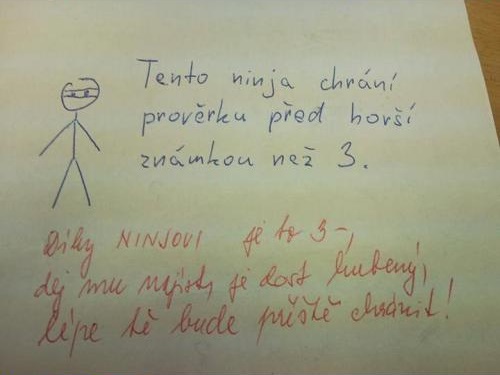 Tento ninja chrání
prověrku před horší
známkou než 3.
Díky NINJOVI je to 3-,
dej mu najíst, je dost hubený,
lépe tě bude příště chránit!